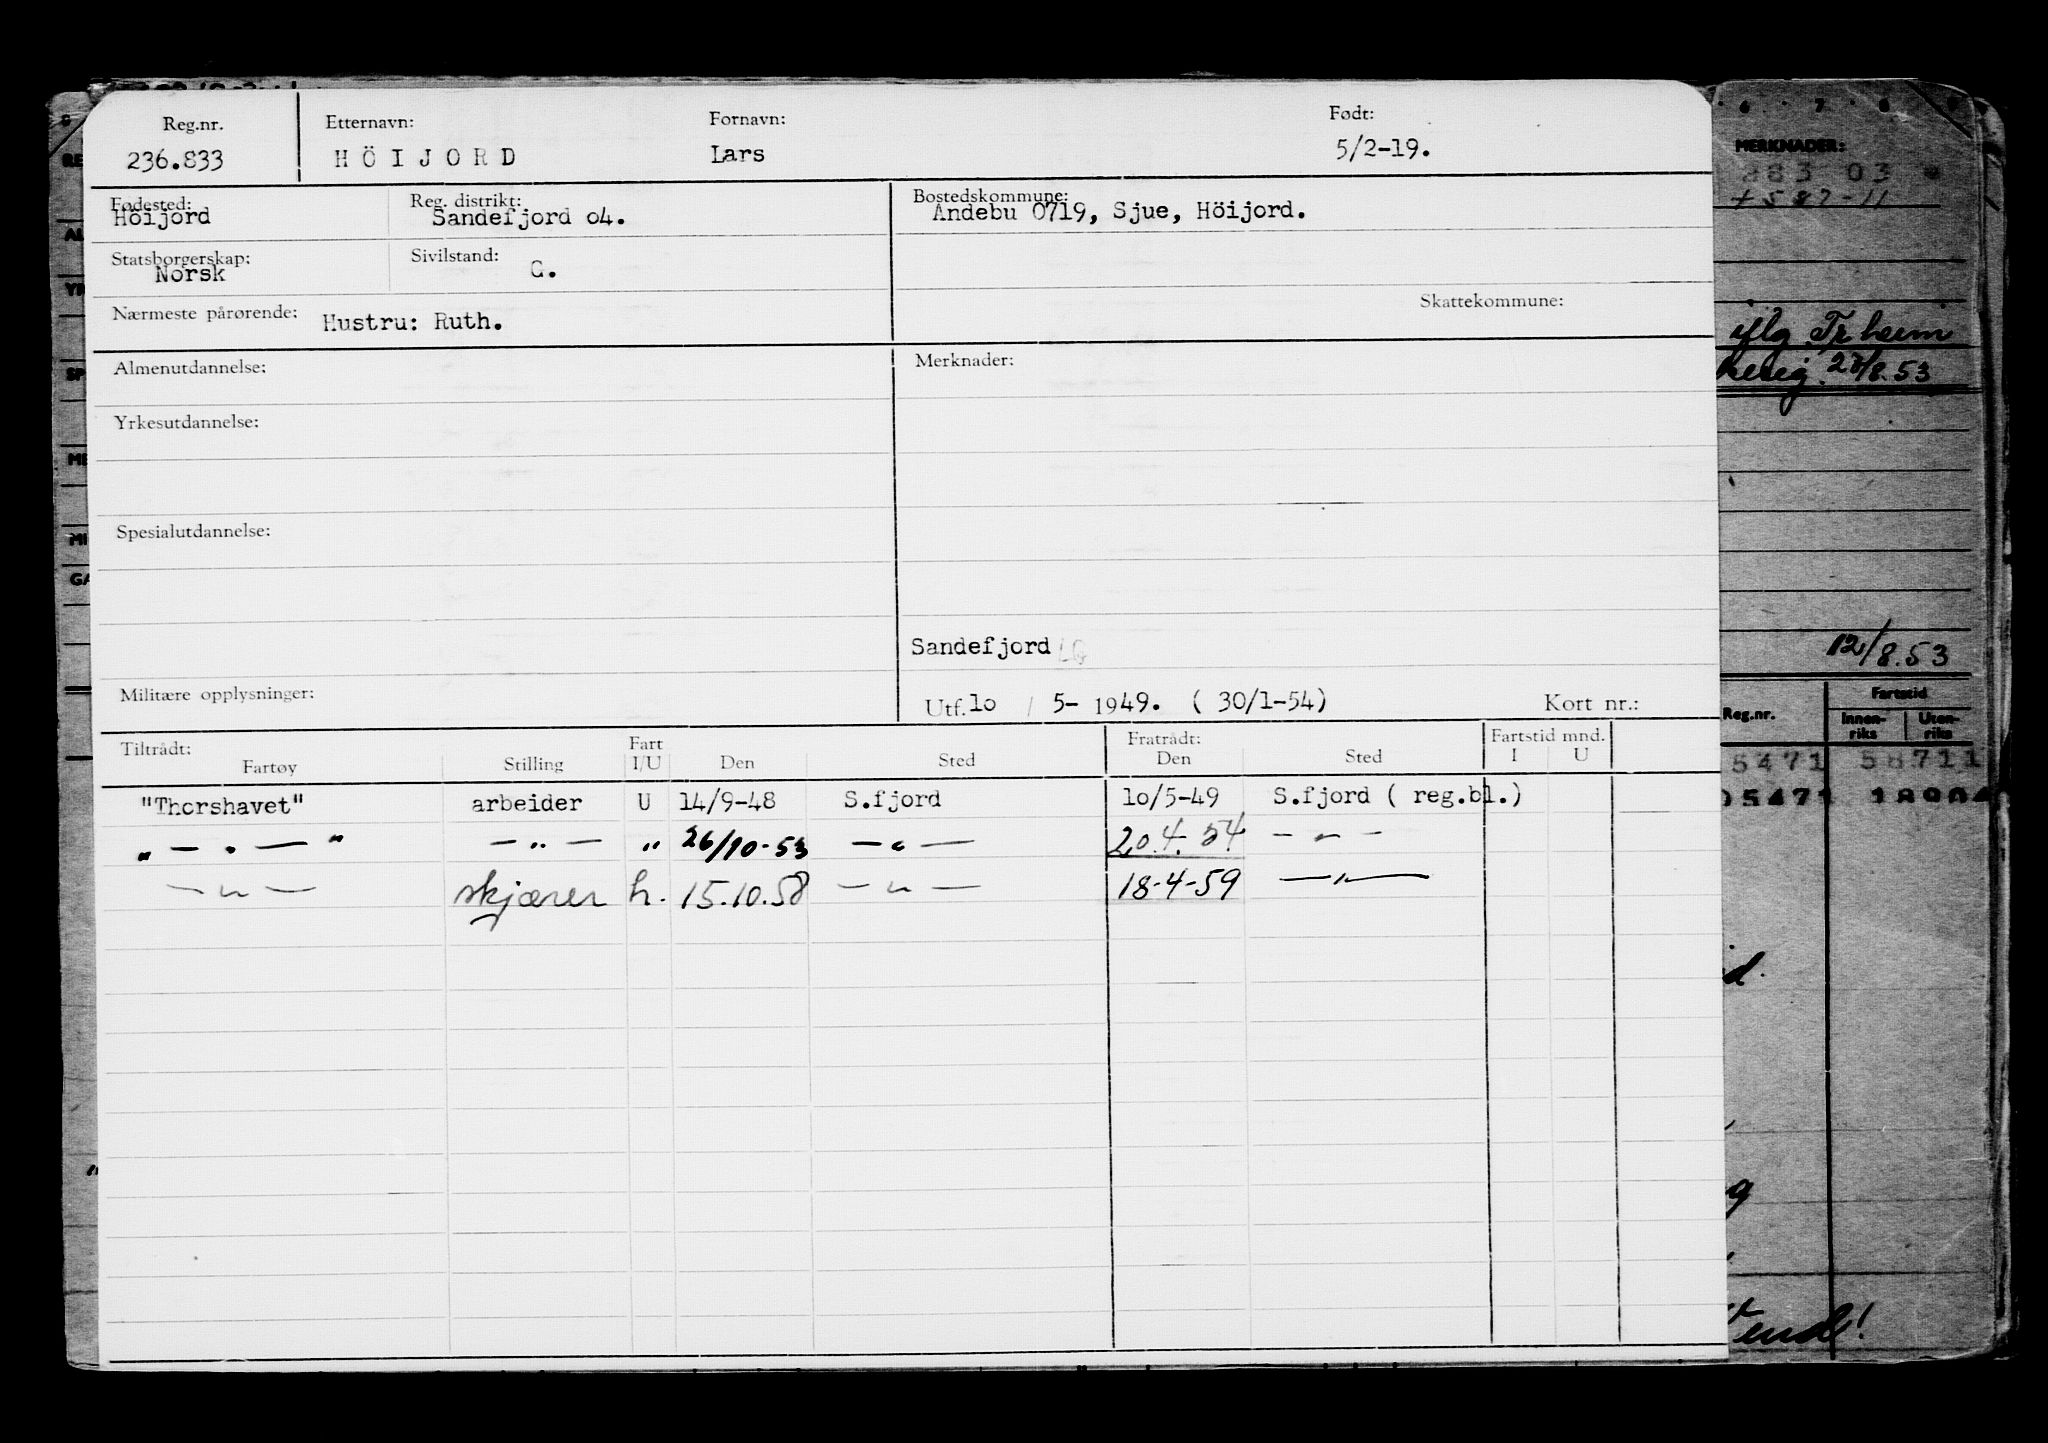 Reg.nr. Etternavn: Fornavn: Født:
236.833 HÖIJORD Lars 5/2-19.
Fødested: Reg. distrikt: Bostedskommune:
Höijord Sandefjord o4. Andebu 0719, Sjue, Höijord.
Statsborgerskap: Sivilstand:
Norsk G.
Skattekommune:
Nærmeste pårørende: Hustru: Ruth.
Almenutdannelse: Merknader:
Yrkesutdannelse:
Spesialutdannelse:
Sandefjord
Militære opplysninger: Utf. lo / 5- 1949. ( 30/1-54) Kort nr.:
Tiltrådt: Fart Fratrådt: Fartstid mnd.
Fartøy Stilling I/U Den Sted Den Sted I U
"Thorshavet" arbeider U 14/9-48 S.fjord lo/5-49 S.fjord ( reg.bl.)
" — " — " — " — " 26/10-53 — " — 20.4.54 — " —
— " — skjærer h. 15.10.58 — " — 18-4-59 — " —
6 7 8
MERKNADER:
883 03
+587-11
iflg Tr.heim
28/8.53
12/8.53
Fartstid
Reg.nr. Innen-riks Uten-riks
5471 58711
05471 18904